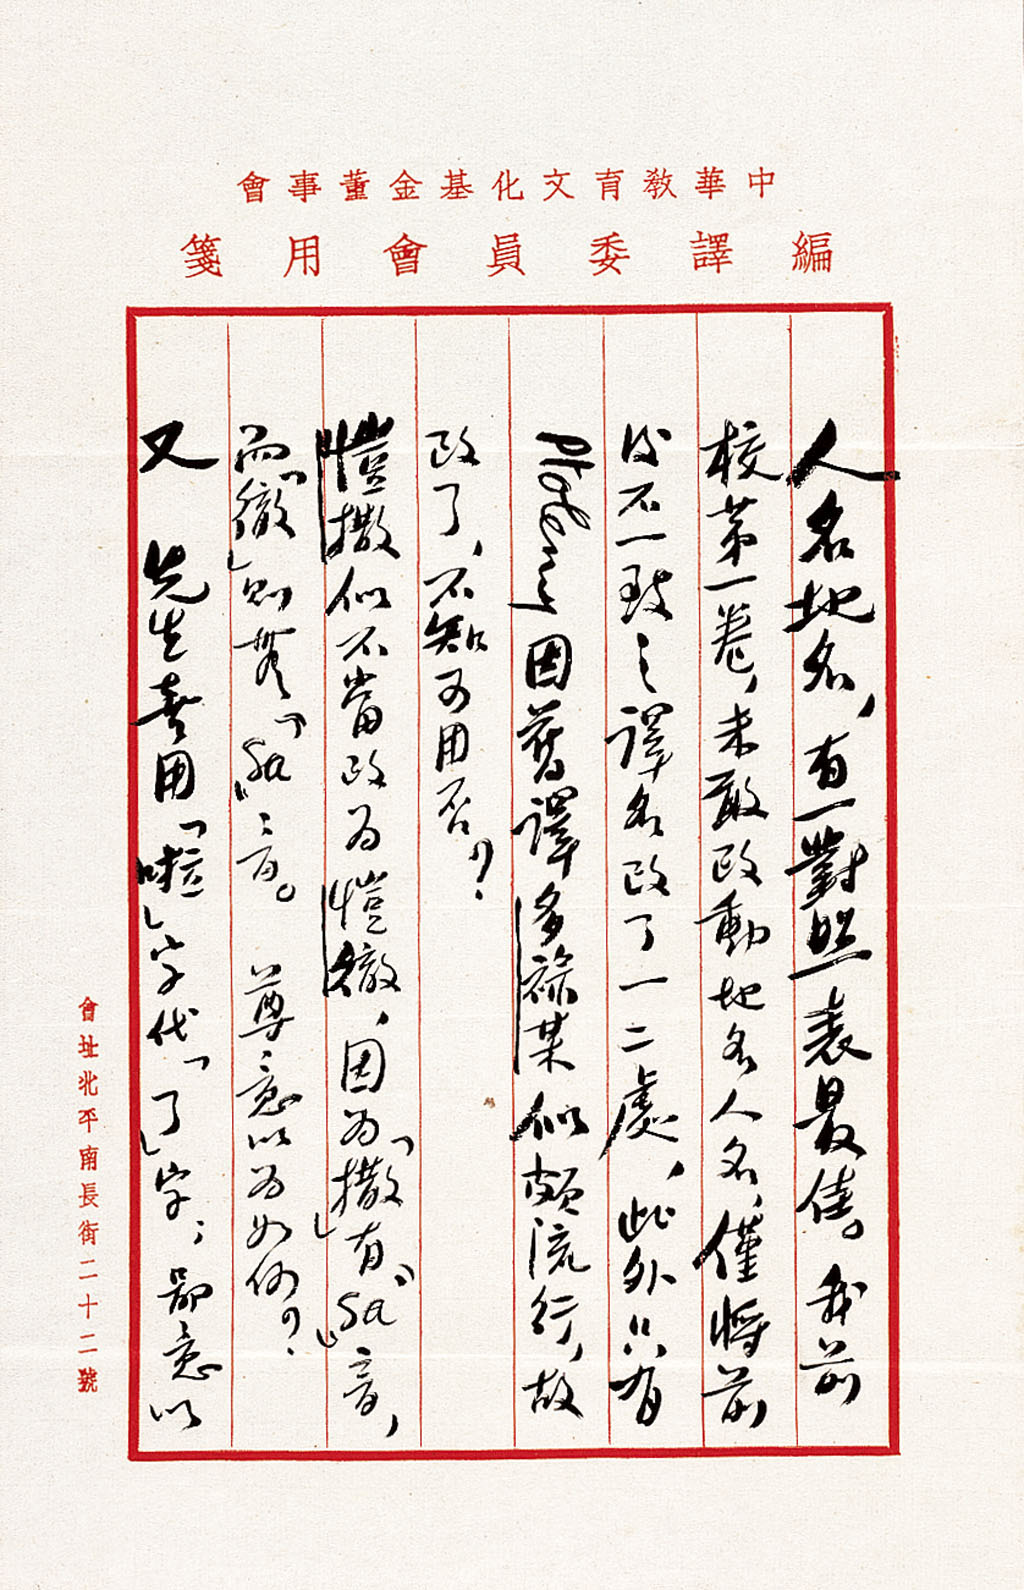 中華教育文化基金董事會
編譯委員會用箋
人名地名，有一對照表最佳。我前
校第一卷，未敢改動地名人名，僅將前
後不一致之譯名改了一二處，此外只有
Ptolemy因舊譯多祿某似頗流行，故
改了，不知可用否？
愷撒似不當改為愷徹，因為「撒」有「sa」音，
而「徹」則無「sa」音。尊意以為如何？
又 先生喜用「啦」字代「了」字；鄙意以
會址北平南長街二十二號